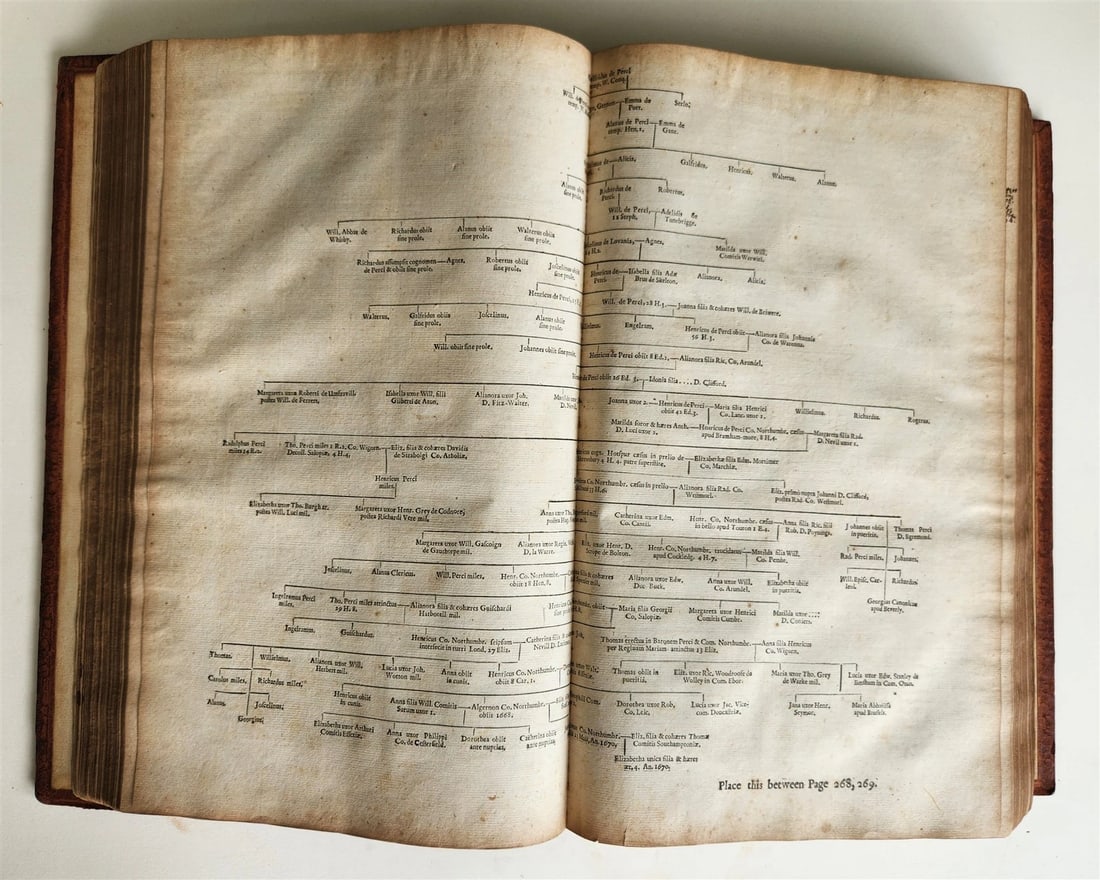 de Perci
Will.
Emma de
Port.
Serlo.
Alanus de Perci
temp. Hen. 1.
Emma de
Gant.
Alicia.
Galfridus.
Henricus.
Walterus.
Alanus.
Richardus de
Perci.
Robertus.
sine prole.
Will. de Perci,
12 Steph.
Adelidis de
Tunebrigge.
Will. Abbas de
Whitby.
Richardus obiit
sine prole.
Alanus obiit
sine prole.
Walterus obiit
sine prole.
de Lovania,
Agnes.
Matilda uxor Will.
Comitis Warwici.
Richardus assumpsit cognomen
de Perci & obiit sine prole.
Agnes.
Robertus obiit
sine prole.
Joscelinus obiit
sine prole.
Henricus de
Perci.
Isabella filia Adæ
Brus de Skelton.
Alianora.
Alicia.
Henricus de Perci,
Will. de Perci, 28 H.3.
Joanna filia & cohæres Will. de Briwere.
Walterus.
Galfridus obiit
sine prole.
Joscelinus.
Alanus obiit
sine prole.
Engelram.
Henricus de Perci obiit
56 H.3.
Alianora filia Johannis
Co. de Warenna.
Will. obiit sine prole.
Johannes obiit sine prole.
Henricus de Perci obiit 8 Ed.2.
Alianora filia Ric. Co. Arundel.
de Perci obiit 26 Ed. 3.
Idonia filia .... D. Clifford.
Margareta uxor Roberti de Umfravill,
postea Will. de Ferrers.
Isabella uxor Will. filii
Gilberti de Aton.
Alianora uxor Joh.
D. Fitz-Walter.
Joanna uxor 2.
Henricus de Perci
obiit 42 Ed.3.
Maria filia Henrici
Co. Lanc. uxor 1.
Willielmus.
Richardus.
Rogerus.
Matilda soror & hæres Anth.
D. Luci uxor 2.
Henricus de Perci Co. Northumbr. cæsus
apud Bramham-more, 8 H.4.
Margareta filia Rad.
D. Nevil uxor 1.
Radulphus Perci
miles 14 R.2.
Tho. Perci miles 2 R.2. Co. Wigorn.
Decoll. Salopiæ, 4 H.4.
Eliz. filia & cohæres Davidis
de Strabolgi Co. Atholiæ,
Hotspur cæsus in prelio de
4 H. 4. patre superstite.
Elizabetha filia Edm. Mortimer
Co. Marchiæ.
Henricus Perci
miles.
Co. Northumbr. cæsus in prelio
33 H.6.
Alianora filia Rad. Co.
Westmorl.
Eliz. primò nupta Johanni D. Clifford,
postea Rad. Co. Westmorl.
Elizabetha uxor Tho. Burgh ar.
postea Will. Luci mil.
Margareta uxor Henr. Grey de Codnore,
postea Richardi Vere mil.
Catherina uxor Edm.
Co. Cantii.
Henr. Co. Northumbr. cæsus
in bello apud Touton 1 E.4.
Anna filia Ric. filii
Rob. D. Poynings.
Johannes obiit
in pueritia.
Thomas Perci
D. Egremond.
Margareta uxor Will. Gascoign
de Gauthorpe mil.
D. la Warre.
Eliz. uxor Henr. D.
Scrope de Bolton.
Henr. Co. Northumbr. trucidatus
apud Cockledg. 4 H.7.
Matilda filia Will.
Co. Pembr.
Rad. Perci miles.
Johannes.
Joscelinus.
Alanus Clericus.
Will. Perci miles.
Henr. Co. Northumbr.
obiit 18 Hen. 8.
Alianora uxor Edw.
Duc. Buck.
Anna uxor Will.
Co. Arundel.
Elizabetha obiit
in pueritia.
Richardus
Georgius Canonicus
apud Beverly.
Ingelramus Perci
miles.
Tho. Perci miles attinctus
29 H. 8.
Alianora filia & cohæres Guischardi
Harbottell mil.
Maria filia Georgii
Co. Salopiæ.
Margareta uxor Henrici
Comitis Cumbr.
Matilda uxor ....
D. Coniers.
Ingelramus.
Guischardus.
Henricus Co. Northumbr. seipsum
interfecit in turri Lond. 27 Eliz.
Thomas erectus in Baronem Perci & Com. Northumbr.
per Reginam Mariam attinctus 13 Eliz.
Anna filia Henrici
Co. Wigorn.
Thomas.
Willielmus.
Alianora uxor Will.
Herbert mil.
Lucia uxor Joh.
Wotton mil.
Anna obiit
in cunis.
Henricus Co. Northumbr.
obiit 8 Car. 1.
Thomas obiit in
pueritia.
Eliz. uxor Ric. Woodroofe de
Wolley in Com. Ebor.
Maria uxor Tho. Grey
de Warke mil.
Lucia uxor Edw. Stanley de
Carolus miles.
Richardus miles.
Henricus obiit
in cunis.
Anna filia Will. Comitis
Sarum uxor 1.
Algernon Co. Northumbr.
obiit 1668.
Dorothea uxor Rob.
Co. Leic.
Lucia uxor Jac. Vice-
com. Doncastriæ.
Jana uxor Henr.
Seymor.
Maria Abbatissa
apud Bruxels.
Alanus.
Joscelinus.
Georgius.
Elizabetha uxor Arthuri
Comitis Essexiæ.
Anna uxor Philippi
Co. de Cesterfeld.
Dorothea obiit
ante nuptias.
Catherina obiit
ante nuptias.
Co. Northumbr.
An. 1670.
Eliz. filia & cohæres Thomæ
Comitis Southamptoniæ.
Elizabetha unica filia & hæres
æt. 4. An. 1670.
Place this between Page 268, 269.